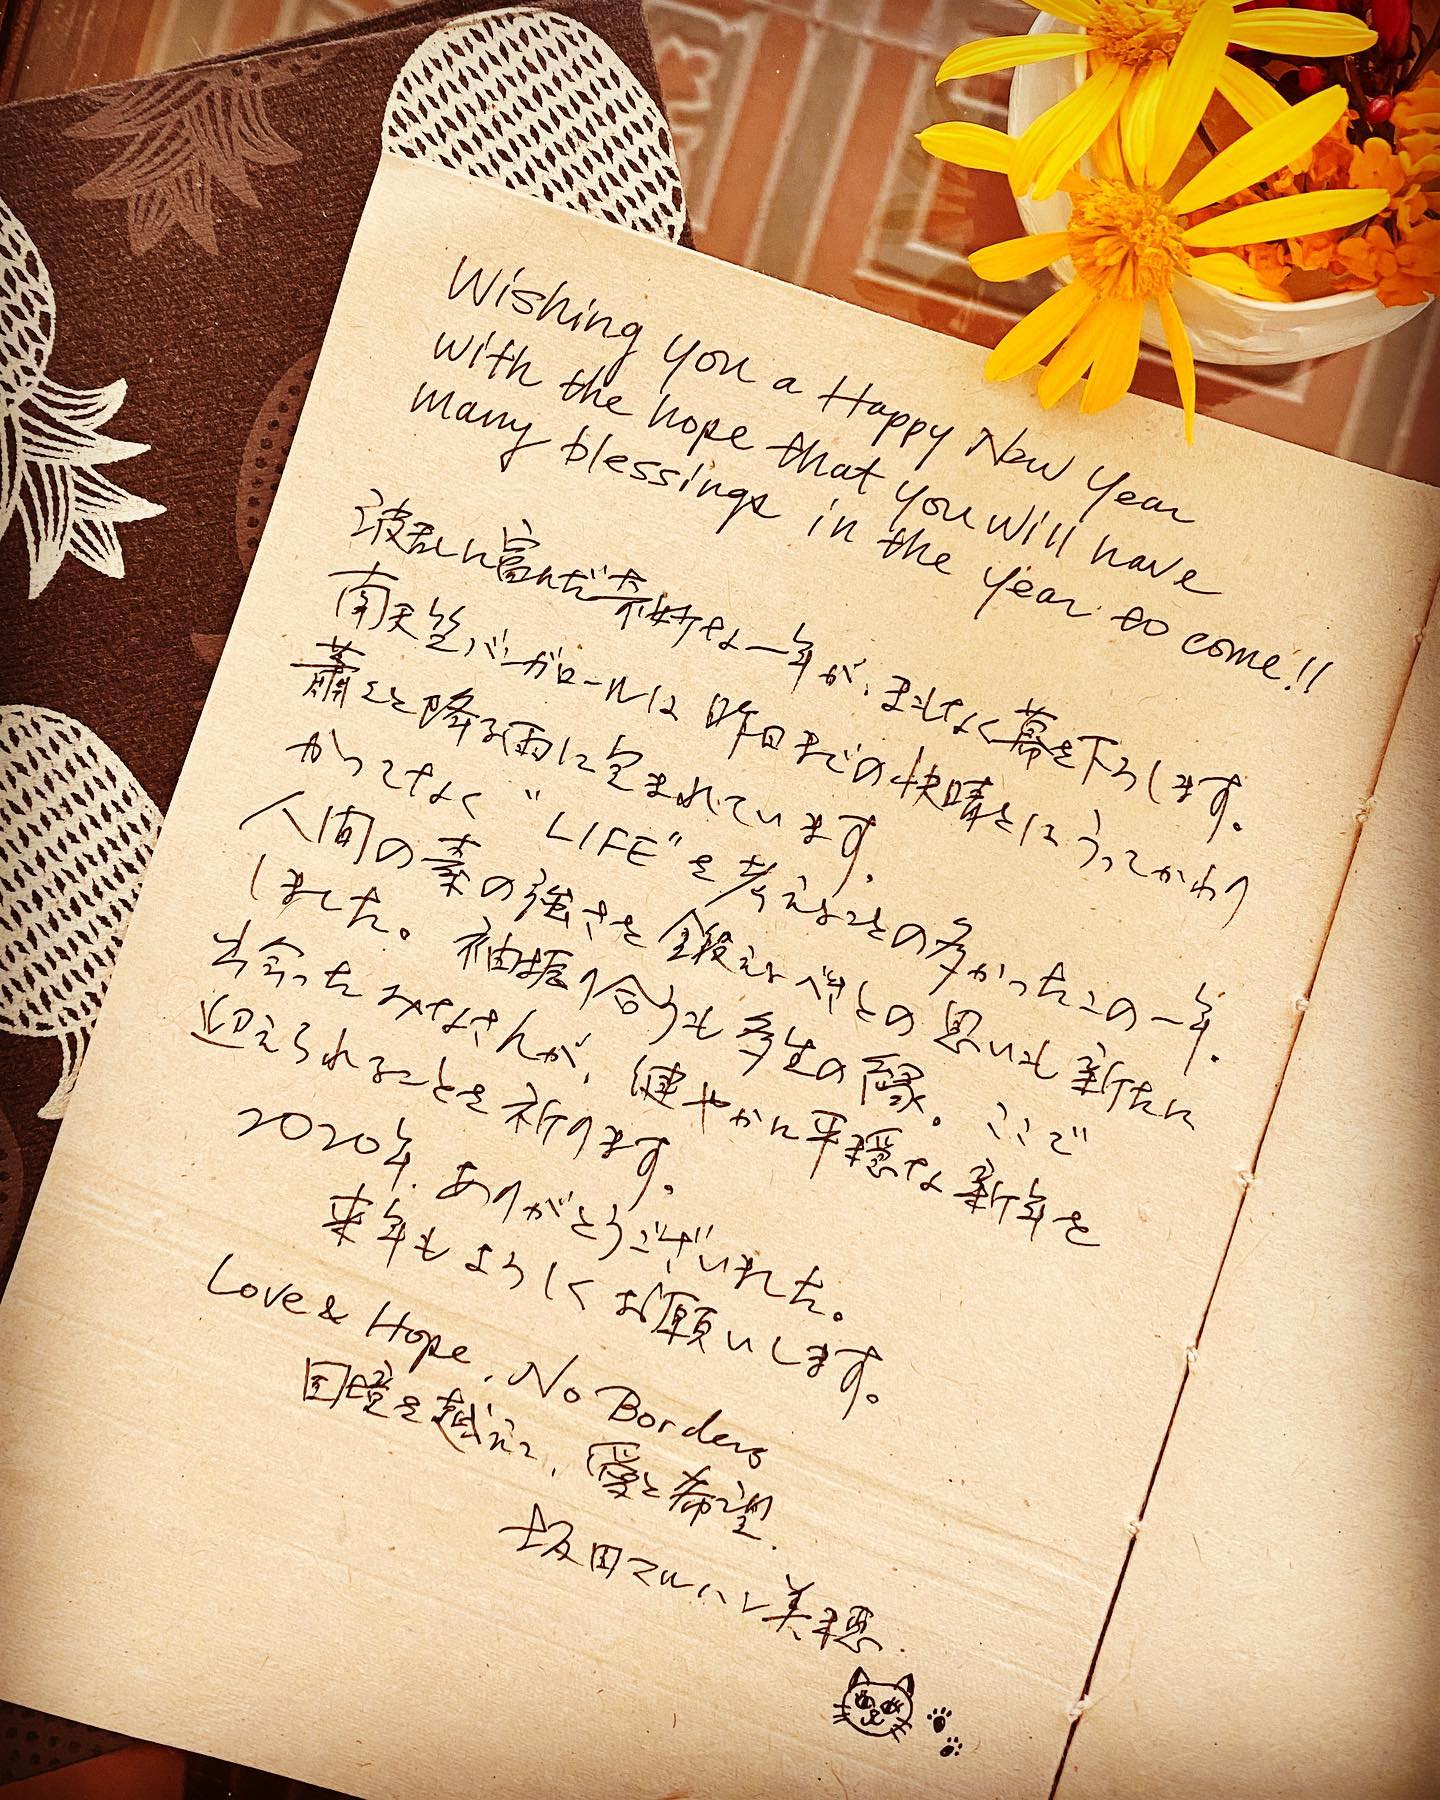 Wishing you a Happy New Year
with the hope that you will have
many blessings in the year to come!!
波乱に富んだ奇妙な一年が、まもなく幕を下ろします。
南天竺バンガロールは昨日までの快晴とはうってかわり
蕭々と降る雨に包まれています。
かつてなく“LIFE”を考えることの多かったこの一年。
人間の素の強さを鍛えるべきとの思いも新たに
しました。袖振り合うも多生の縁。ここで
出会ったみなさんが、健やかに平穏な新年を
迎えられることを祈ります。
2020年、ありがとうございました。
来年もよろしくお願いします。
Love & Hope, No Borders
国境を越えて、愛と希望.
坂田マルハン美穂.